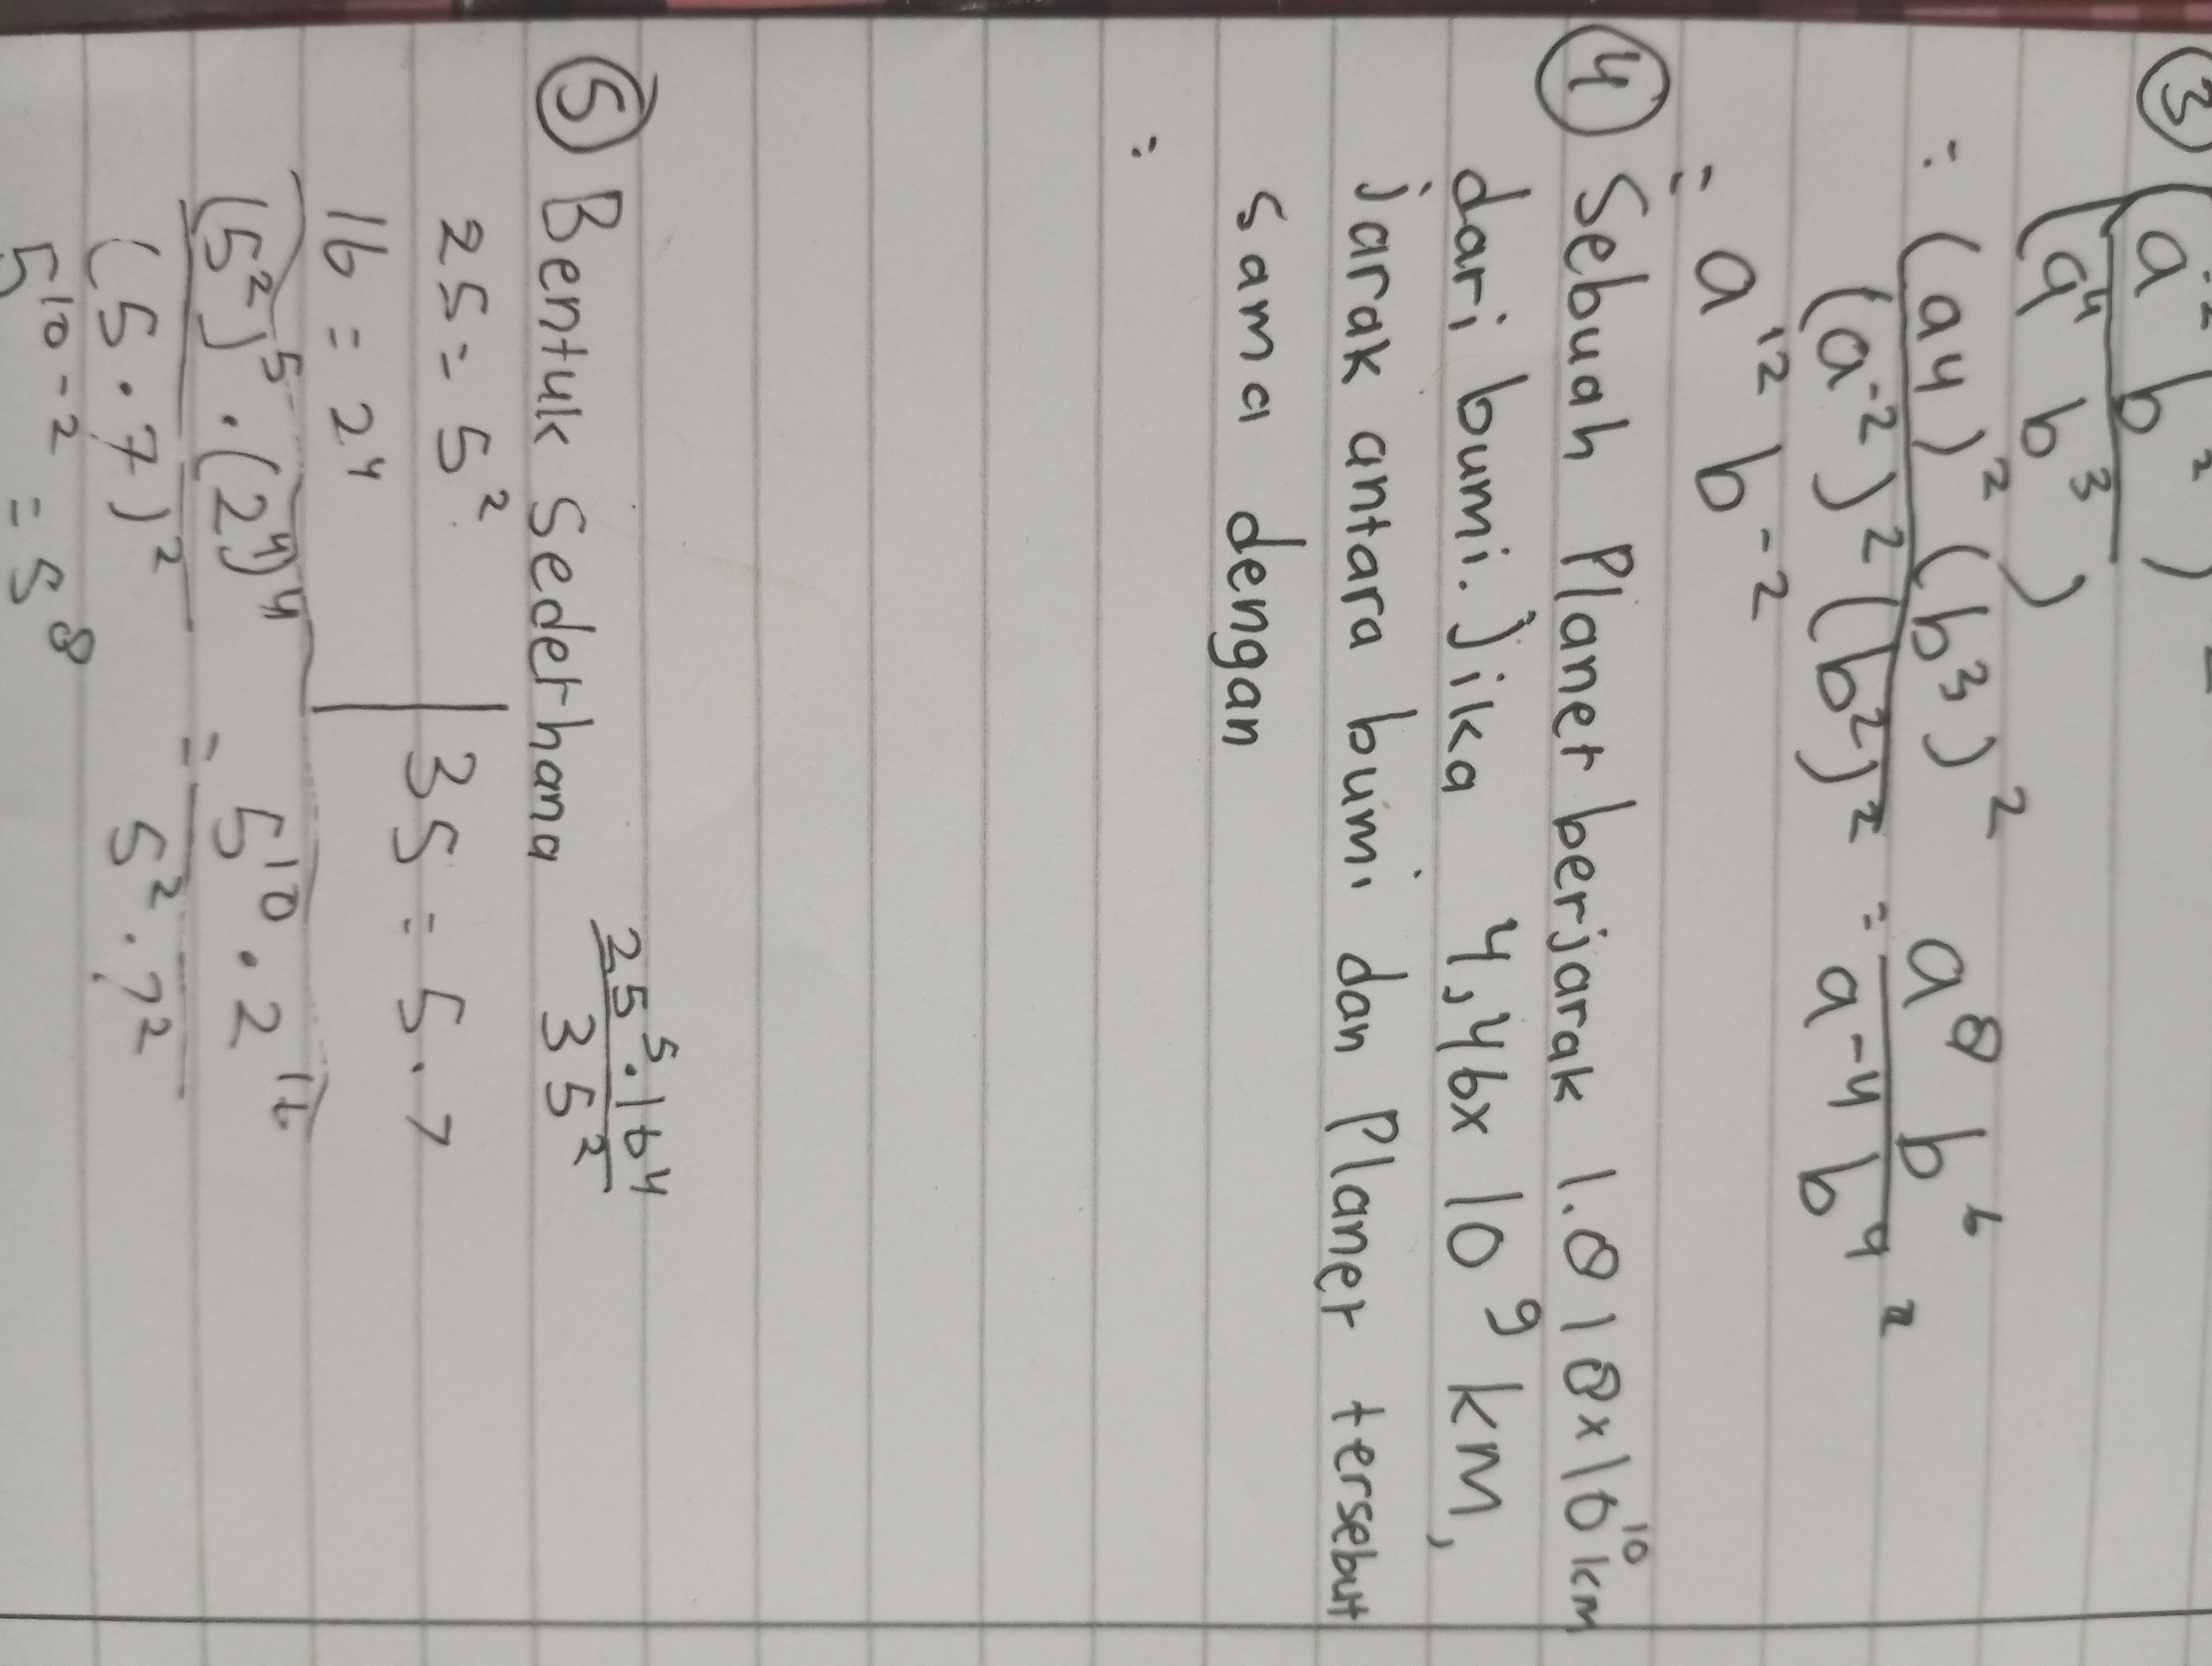 ③ (a⁻² b²)⁻
(a⁴ b³)
= (a4)² (b³)²
(a⁻²)² (b²)² = a⁸ b⁶
a⁻⁴ b⁴ ²
= a¹² b⁻²
④ Sebuah Planet berjarak 1.018x10¹⁰ km
dari bumi. Jika 4,46x 10⁹ km,
jarak antara bumi dan Planet tersebut
sama dengan
:
⑤ Bentuk Sederhana 25⁵.16⁴
35²
25 = 5²
16 = 2⁴ | 35 = 5.7
(5²)⁵ . (2⁴)⁴ = 5¹⁰ . 2¹⁶
(5.7)² 5² . 7²
5¹⁰⁻² = 5⁸